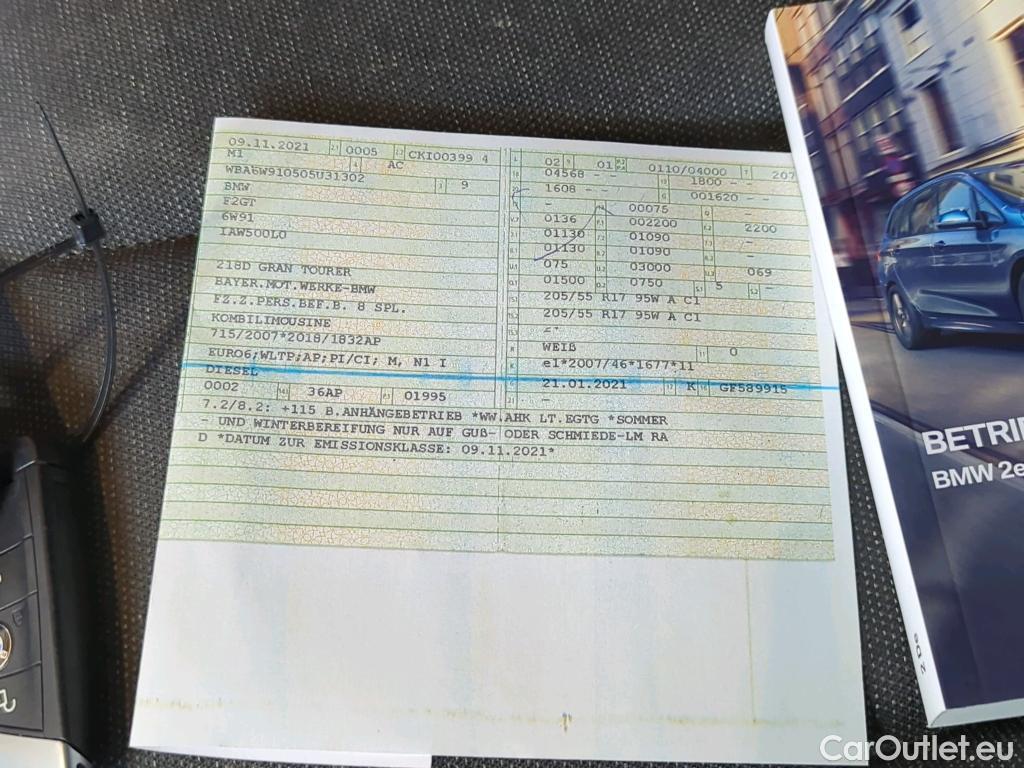 09.11.2021 0005 CKI00399 4
M1 AC
WBA6W910505U31302 9
BMW
F2GT
6W91
IAW500L0
218D GRAN TOURER
BAYER.MOT.WERKE-BMW
FZ.Z.PERS.BEF.B. 8 SPL.
KOMBILIMOUSINE
715/2007*2018/1832AP
EURO6;WLTP;AP;PI/CI; M, N1 I
DIESEL
0002 36AP 01995
02 01 0110/04000 207
04568 - - 1800 - -
1608 - - 001620 - -
- 00075 -
0136 002200 2200
01130 01090 -
01130 01090 -
075 03000 069
01500 0750 5 -
205/55 R17 95W A C1
205/55 R17 95W A C1
WEIß 0
e1*2007/46*1677*11
21.01.2021 K GF589915
-
7.2/8.2: +115 B.ANHÄNGEBETRIEB *WW.AHK LT.EGTG *SOMMER
- UND WINTERBEREIFUNG NUR AUF GUß- ODER SCHMIEDE-LM RA
D *DATUM ZUR EMISSIONSKLASSE: 09.11.2021*
BETRI
BMW 2e
CarOutlet.eu